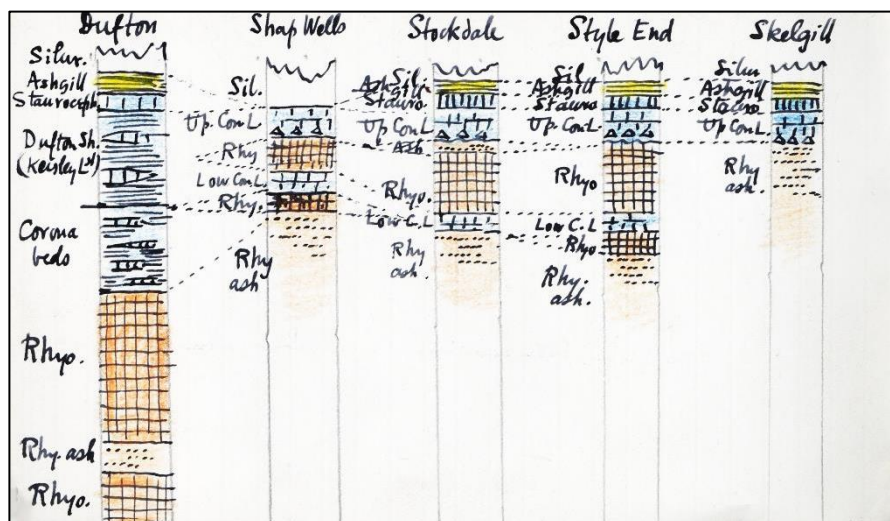 Dufton
Silur.
Ashgill
Staurceph.
Dufton Sh.
(Keisley Lst)
Corona
beds
Rhyo.
Rhy. ash
Rhyo.
Shap Wells
Sil.
Up. Con L.
Rhy
Low Con L.
Rhy.
Rhy
ash
Stockdale
Sil.
Ashgill
Stauro
Up Con L
Ash
Rhyo.
Low C. L
Rhy
ash.
Style End
Sil
Ashgill
Stauro
Up. Con L
Rhyo
Low C. L
Rhyo
Rhy.
ash.
Skelgill
Silur
Ashgill
Stauro
Up Con L
Rhy
ash.